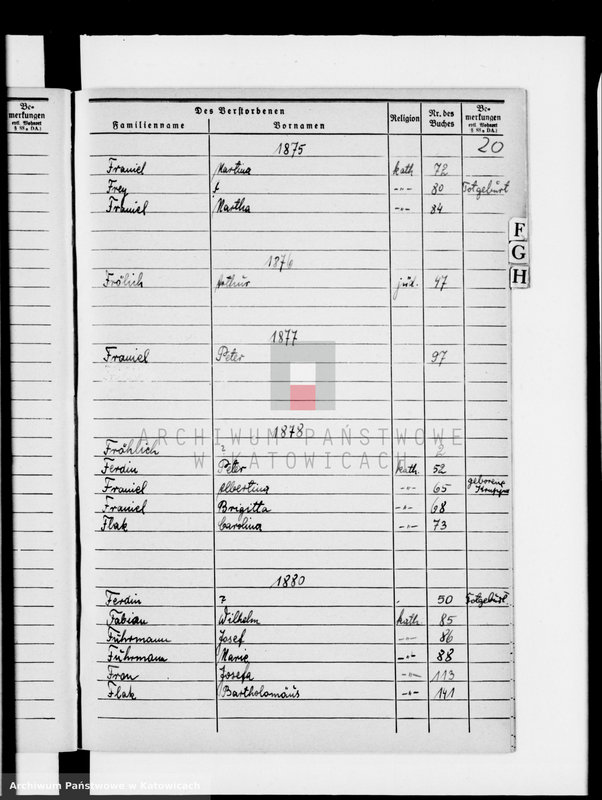 Be-
merkungen
evtl. Wohnort
§ 88, DA.)
Des Verstorbenen
Familienname Vornamen Religion Nr. des Buches Be-merkungen evtl. Wohnort § 88, DA.)
20
1875
Framiel Martina kath. 72
Frey t -"- 80 Totgeburt
Framiel Martha -"- 84
F
G
H
1876
Frölich Arthur jüd. 47
1877
Framiel Peter 97
1878
Fröhlich ? 2
Ferdin Peter kath. 52
Framiel Albertina -"- 65 geborene
Framiel Brigitta -"- 68
Flak Carolina -"- 73
1880
Ferdin ? 50 Totgeburt
Fabian Wilhelm kath. 85
Fuhrmann Josef -"- 86
Fuhrmann Marie -"- 88
Fron Josefa -"- 113
Flak Bartholomäus -"- 141
ARCHIWUM PAŃSTWOWE
W KATOWICACH
Archiwum Państwowe w Katowicach